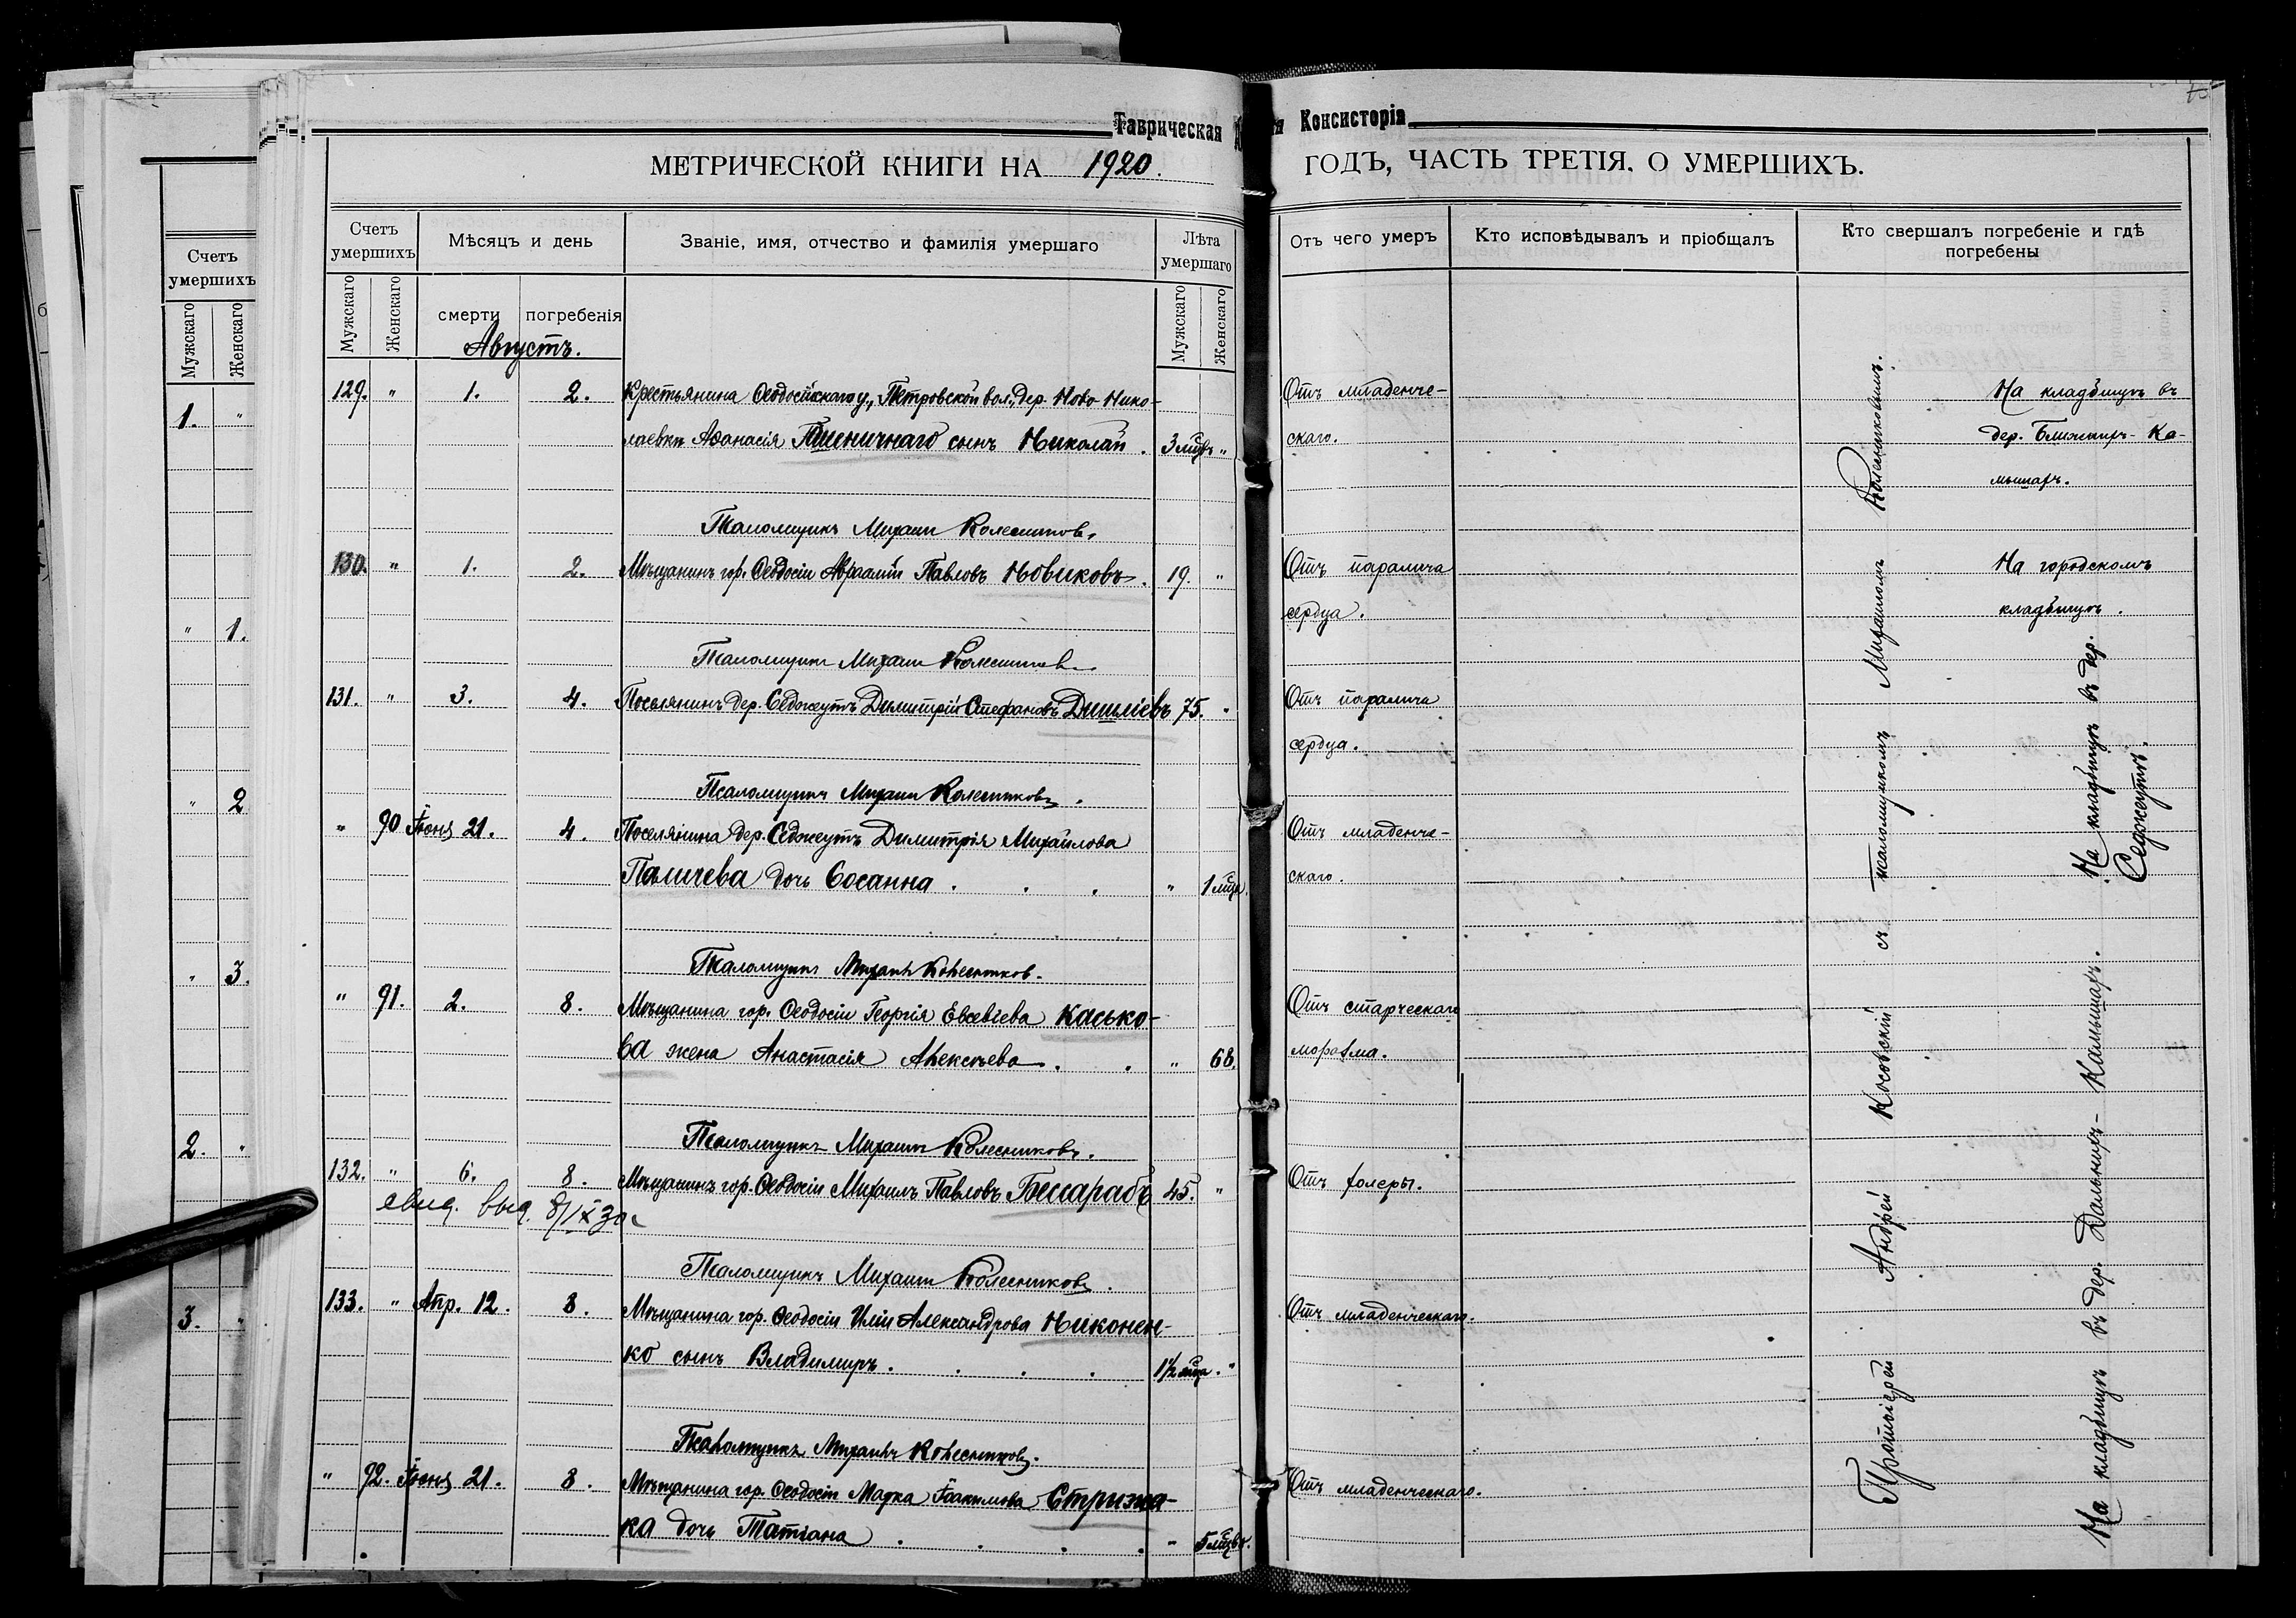 Таврическая Консисторія
МЕТРИЧЕСКОЙ КНИГИ НА 1920. ГОДЪ, ЧАСТЬ ТРЕТІЯ, О УМЕРШИХЪ.
Счетъ умершихъ
Мужскаго
Женскаго
1. "
" 1.
" 2
" 3.
2. "
3. "
Счетъ умершихъ
Мѣсяцъ и день
Званіе, имя, отчество и фамилія умершаго
Лѣта умершаго
Отъ чего умеръ
Кто исповѣдывалъ и пріобщалъ
Кто свершалъ погребеніе и гдѣ погребены
Мужскаго
Женскаго
смерти
погребенія
Мужскаго
Женскаго
Августъ.
129. " 1. 2. Крестьянина Ѳеодосійскаго у., Петровской вол., дер. Ново-Нико-
лаевки Аѳанасія Пшеничнаго сынъ Николай . 3 мцъ "
Отъ младенче-
скаго.
На кладбищѣ въ
дер. Ближнихъ-Ка-
мышахъ.
Псаломщикъ Михаилъ Колесниковъ.
130. " 1. 2. Мѣщанинъ гор. Ѳеодосіи Авраамій Павловъ Новиковъ. 19. "
Отъ паралича
сердца.
На городскомъ
кладбищѣ.
Псаломщикъ Михаилъ Колесниковъ
131. " 3. 4. Поселянинъ дер. Седжеутъ Димитрій Стефановъ Дишліевъ 75. "
Отъ паралича
сердца.
Псаломщикъ Михаилъ Колесниковъ.
" 90 Іюня 21. 4. Поселянина дер. Седжеутъ Димитрія Михайлова
Паличева дочь Сосанна . . . " 1 мцъ.
Отъ младенче-
скаго.
Псаломщикъ Михаилъ Колесниковъ.
" 91. 2. 8. Мѣщанина гор. Ѳеодосіи Георгія Евсевіева Касько-
ва жена Анастасія Алексѣева . . " 68.
Отъ старческаго
моразма.
Псаломщикъ Михаилъ Колесниковъ.
132. " 6. 8. Мѣщанинъ гор. Ѳеодосіи Михаилъ Павловъ Бессарабъ 45. "
Отъ холеры.
свид. выд. 8/IX 30г
Псаломщикъ Михаилъ Колесниковъ.
133. " Апр. 12. 8. Мѣщанина гор. Ѳеодосіи Иліи Александрова Никонен-
ко сынъ Владимиръ. . . . 1½ мцъ. "
Отъ младенческаго.
Псаломщикъ Михаилъ Колесниковъ.
" 92. Іюня 21. 8. Мѣщанина гор. Ѳеодосіи Марка Іоакимова Стрижа-
ка дочь Татіана . . . . " 5 мцвъ.
Отъ младенческаго.
Протоіерей Андрей Косовскій съ псаломщикомъ Михаиломъ Колесниковымъ.
На кладбищѣ въ дер. Дальнихъ-Камышахъ.
На кладбищѣ въ дер.
Седжеутѣ.